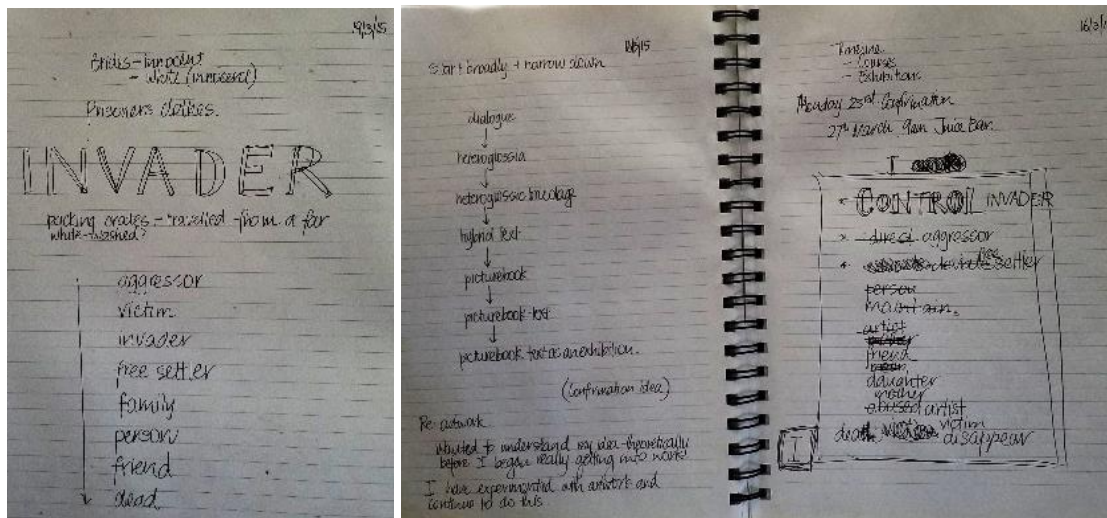 19/3/15
Brides - innocent
- white (innocence)
Prisoners clothes.
INVADER
packing crates - travelled from a far
white-washed?
aggressor
victim
invader
free settler
family
person
friend
dead
15
Start broadly + narrow down
dialogue
heteroglossia
heteroglossic bricolage
hybrid text
picturebook
picturebook text
picturebook text as an exhibition.
(Confirmation idea)
Re: artwork
wanted to understand my idea theoretically
before I began really getting into work
I have experimented with artwork and
continue to do this
16/3/1
Timeline
- Courses
- Exhibitions
Monday 23rd Confirmation
27th March 9am Juice Bar
I
* CONTROL INVADER
* direct aggressor
* free settler
person
maintain.
artist
friend
daughter
mother
abused artist
dead victim
I disappear